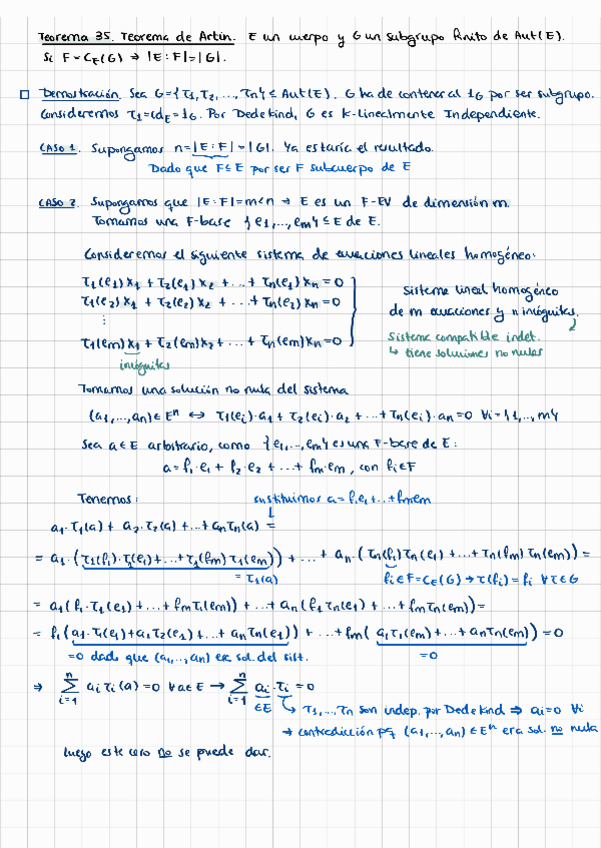 Teorema 35. Teorema de Artin. E un cuerpo y G un subgrupo finito de Aut(E).
Si F = C_E(G) ⇒ |E:F| = |G|.
□ Demostración. Sea G = {τ1, τ2, ..., τn} ≤ Aut(E). G ha de contener al 1_G por ser subgrupo.
Consideremos τ1 = id_E = 1_G. Por Dedekind, G es K-linealmente Independiente.
CASO 1. Supongamos n = |E:F| = |G|. Ya estaría el resultado.
Dado que F ≤ E por ser F subcuerpo de E
CASO 2. Supongamos que |E:F| = m < n → E es un F-EV de dimensión m.
Tomamos una F-base {e1, ..., em} ≤ E de E.
Consideremos el siguiente sistema de ecuaciones lineales homogéneo:
τ1(e1)x1 + τ2(e1)x2 + ... + τn(e1)xn = 0
τ1(e2)x1 + τ2(e2)x2 + ... + τn(e2)xn = 0
⋮
τ1(em)x1 + τ2(em)x2 + ... + τn(em)xn = 0
incógnitas
Sistema lineal homogéneo
de m ecuaciones y n incógnitas.
Sistema compatible indet.
↳ tiene soluciones no nulas
Tomamos una solución no nula del sistema
(a1, ..., an) ∈ E^n ↔ τ1(ei)·a1 + τ2(ei)·a2 + ... + τn(ei)·an = 0 ∀i = {1, ..., m}
Sea a ∈ E arbitrario, como {e1, ..., em} es una F-base de E:
a = f1·e1 + f2·e2 + ... + fm·em, con fi ∈ F
Tenemos:
sustituimos a = f1e1 + ... + fmem
a1·τ1(a) + a2·τ2(a) + ... + anτn(a) =
= a1·(τ1(f1)·τ1(e1) + ... + τ1(fm)τ1(em)) + ... + an(τn(f1)τn(e1) + ... + τn(fm)τn(em)) =
= τ1(a)
fi ∈ F = C_E(G) → τ(fi) = fi ∀τ ∈ G
= a1(f1·τ1(e1) + ... + fmτ1(em)) + ... + an(f1τn(e1) + ... + fmτn(em)) =
= f1(a1·τ1(e1) + a1τ2(e1) + ... + anτn(e1)) + ... + fm(a1τ1(em) + ... + anτn(em)) = 0
= 0 dado que (a1, ..., an) era sol. del sist.
= 0
⇒ ∑_{i=1}^{n} aiτi(a) = 0 ∀a ∈ E → ∑_{i=1}^{n} ai·τi = 0
∈ E ↳ τ1, ..., τn son indep. por Dedekind ⇒ ai = 0 ∀i
→ contradicción pq (a1, ..., an) ∈ E^n era sol. no nula
Luego este caso no se puede dar.